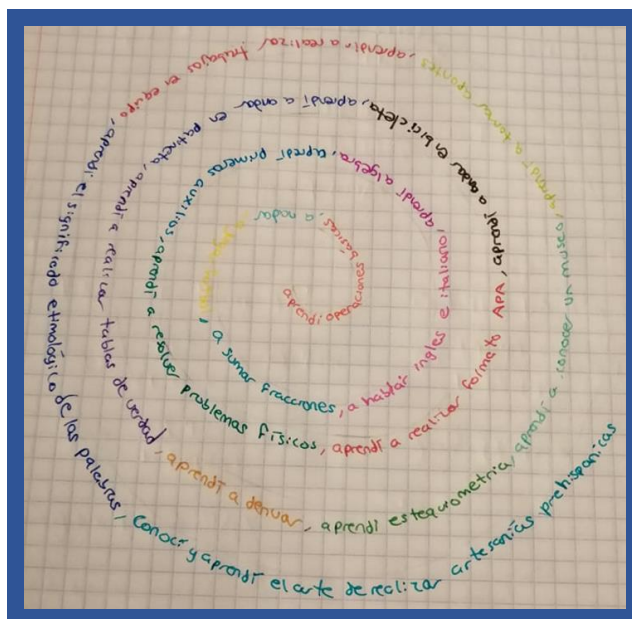 aprendí operaciones básicas, a nadar, a sumar fracciones, a hablar ingles e italiano, aprendí algebra, aprendí primeros auxilios, aprendí a resolver problemas físicos, aprendí a realizar formato APA, aprendí a andar en bicicleta, aprendí a andar en patineta, aprendí a realizar tablas de verdad, aprendí a derivar, aprendí estequiometria, aprendí a conocer un museo, aprendí a tomar apuntes, aprendí a realizar trabajos en equipo, aprendí el significado etimológico de las palabras, conocí y aprendí el arte de realizar artesanías prehispanicas